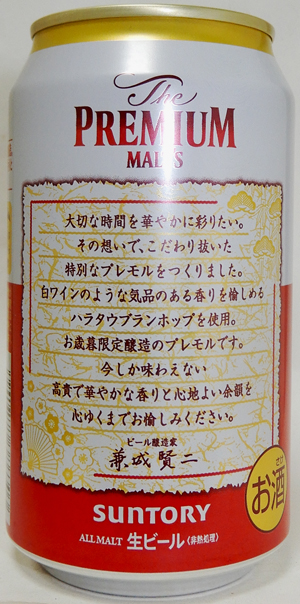 The
PREMIUM
MALTS
大切な時間を華やかに彩りたい。
その想いで、こだわり抜いた
特別なプレモルをつくりました。
白ワインのような気品のある香りを愉しめる
ハラタウブランホップを使用。
お歳暮限定醸造のプレモルです。
今しか味わえない
高貴で華やかな香りと心地よい余韻を
心ゆくまでお愉しみください。
ビール醸造家
兼城賢二
お酒
SUNTORY
ALL MALT 生ビール〈非熱処理〉